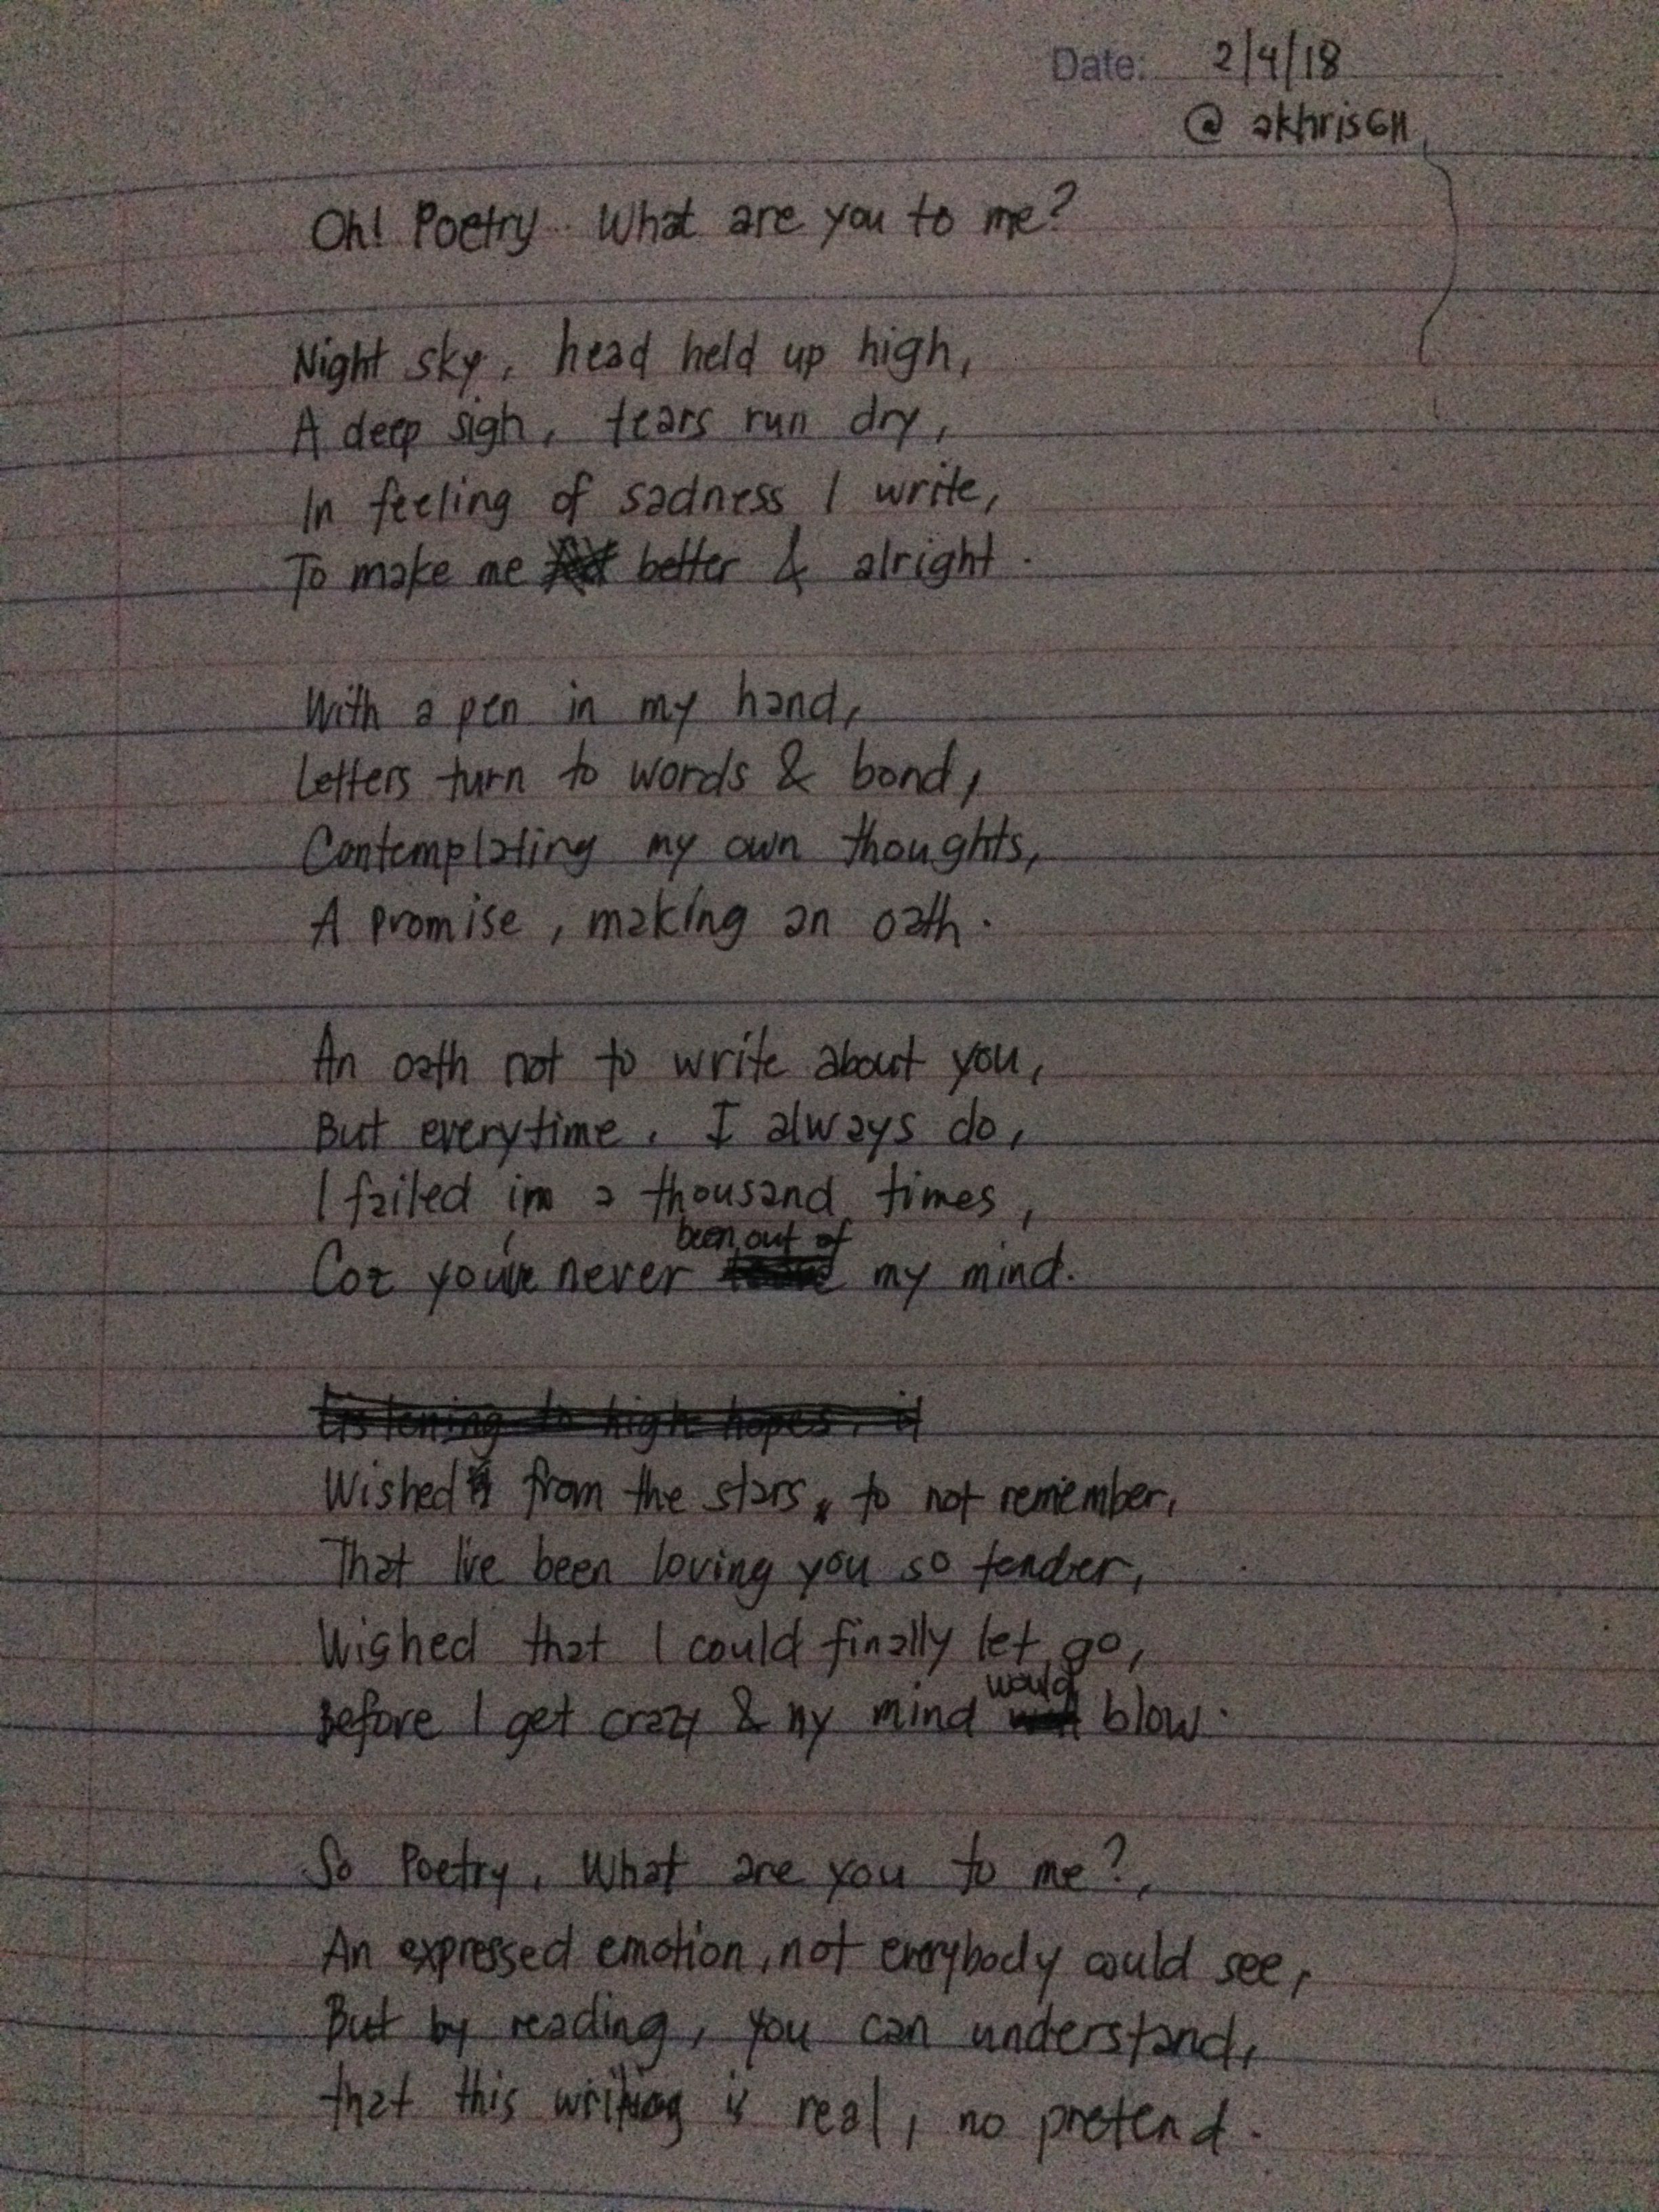 Date: 2/4/18
@ akhrisGH
Oh! Poetry.. What are you to me?
Night sky, head held up high,
A deep sigh, tears run dry,
In feeling of sadness I write,
To make me better & alright.
With a pen in my hand,
Letters turn to words & bond,
Contemplating my own thoughts,
A promise, making an oath.
An oath not to write about you,
But everytime, I always do,
I failed in a thousand times,
Coz you've never been out of my mind.
Listening to high hopes, it
Wished from the stars, to not remember,
That I've been loving you so tender,
Wished that I could finally let go,
Before I get crazy & my mind would blow.
So Poetry, What are you to me?,
An expressed emotion, not everybody could see,
But by reading, you can understand,
that this writing is real, no pretend.